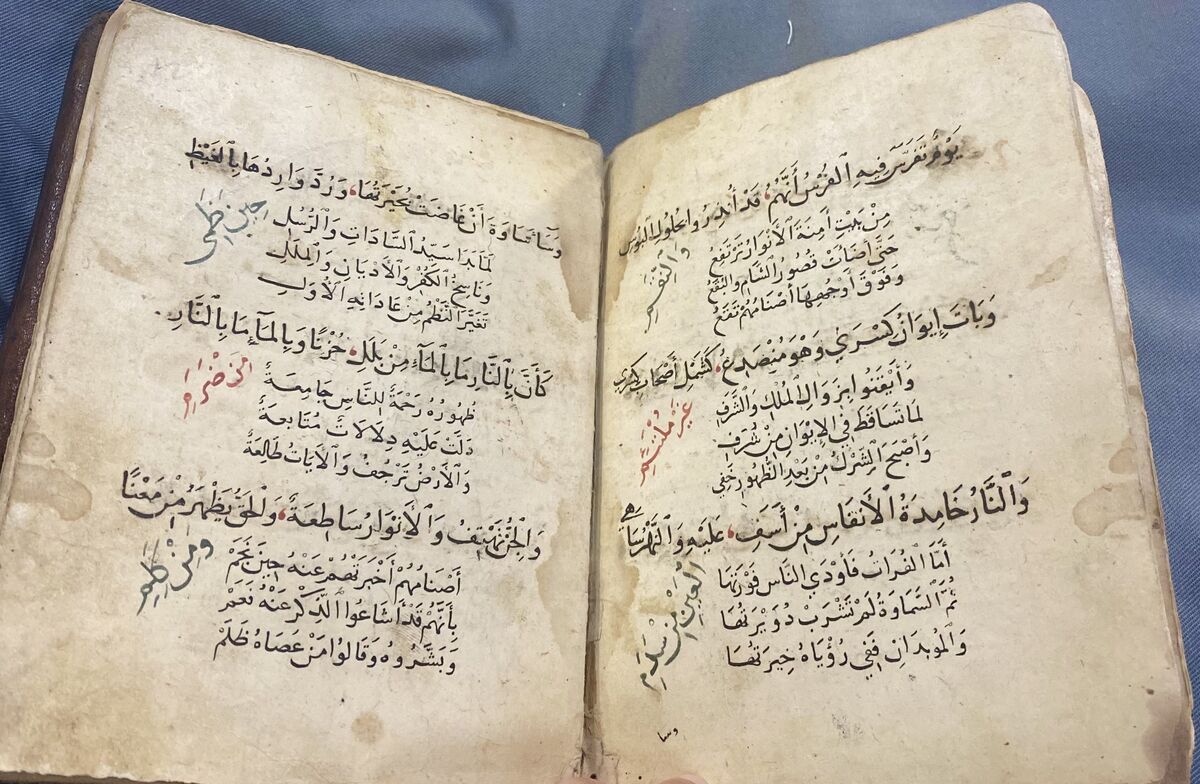 يَوْمٌ تَفَرَّسَ فِيهِ الْفُرْسُ أَنَّهُمُ، قَدْ أُنْذِرُوا بِحُلُولِ الْبُؤْسِ
وَالنِّقَمِ
مِنْ بَيْتِ آمِنَةَ الْأَنْوَارُ تَرْتَفِعُ
حَتَّى أَضَاءَتْ قُصُورُ الشَّامِ وَالْبُقَعُ
وَفَوْقَ أَوْجُهِهَا أَصْنَامُهُمْ تَقَعُ
وَبَاتَ إِيوَانُ كِسْرَى وَهُوَ مُنْصَدِعٌ، كَشَمْلِ أَصْحَابِ كِسْرَى
غَيْرَ مُلْتَئِمِ
وَأَيْقَنُوا بِزَوَالِ الْمُلْكِ وَالشَّرَفِ
لَمَّا تَسَاقَطَ فِي الْإِيوَانِ مِنْ شُرَفِ
وَأَصْبَحَ الشِّرْكُ مِنْ بَعْدِ الظُّهُورِ خَفِي
وَالنَّارُ خَامِدَةُ الْأَنْفَاسِ مِنْ أَسَفٍ، عَلَيْهِ وَالنَّهْرُ سَاهِي
الْعَيْنِ مِنْ سَدَمِ
أَمَّا الْفُرَاتُ فَأَوْدَي النَّاسَ فَوْرَتُهَا
ثُمَّ السَّمَاوَةُ لَمْ تَشْرَبْ دُوَيْرَتُهَا
وَالْمُوبِدَانِ فَفِي رُؤْيَاهُ خِيرَتُهَا
وسا
وَسَآءَ سَاوَةَ أَنْ غَاضَتْ بُحَيْرَتُهَا، وَرُدَّ وَارِدُهَا بِالْغَيْظِ
حِينَ ظَمِى
لَمَّا بَدَا سَيِّدُ السَّادَاتِ وَالرُّسُلِ
وَنَاسِخُ الْكُفْرِ وَالْأَدْيَانِ وَالْمِلَلِ
تَغَيَّرَ النَّظْمُ مِنْ عَادَاتِهِ الْأُوَلِ
كَأَنَّ بِالنَّارِ مَا بِالْمَآءِ مِنْ بَلَلٍ، حُزْنًا وَبِالْمَآءِ مَا بِالنَّارِ
مِنْ ضَرَمِ
ظُهُورُهُ رَحْمَةٌ لِلنَّاسِ جَامِعَةٌ
دَلَّتْ عَلَيْهِ دِلَالَاتٌ مُتَابِعَةٌ
وَالْأَرْضُ تَرْجُفُ وَالْآيَاتُ طَالِعَةٌ
وَالْجِنُّ تَهْتِفُ وَالْأَنْوَارُ سَاطِعَةٌ، وَالْحَقُّ يَظْهَرُ مِنْ مَعْنًا
وَمِنْ كَلِمِ
أَصْنَامُهُمْ أَخْبَرَتْهُمْ عَنْهُ حِينَ نَجَمْ
بِأَنَّهُمْ قَدْ أَشَاعُوا الذِّكْرَ عَنْهُ نَعَمْ
وَبَشَّرُوهُ وَقَالُوا مَنْ عَصَاهُ ظَلَمْ